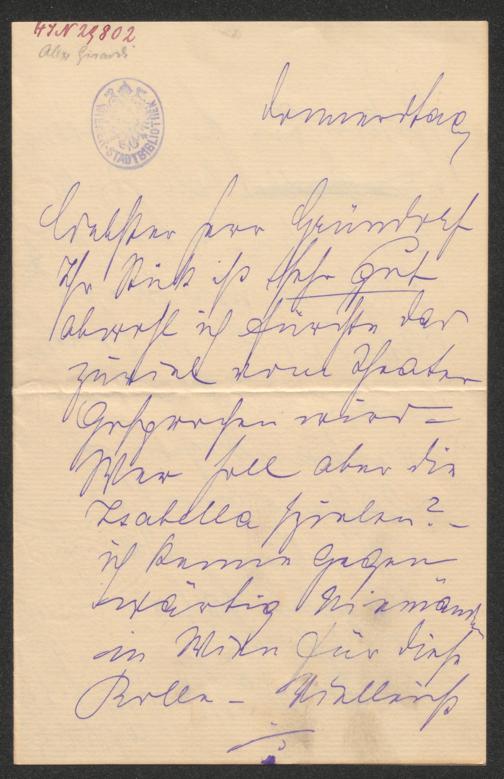 HIN 29802
Alex Girardi
WIENER STADTBIBLIOTHEK
Donnerstag
Liebster Herr Gründorf
Ihr Stück ist sehr gut
obwohl ich fürchte das
zuviel vom Theater
Gesprochen wird –
Wer soll aber die
Isabella spielen? –
ich kenne gegen
wärtig Niemand
in Wien für diese
Rolle – Vielleicht